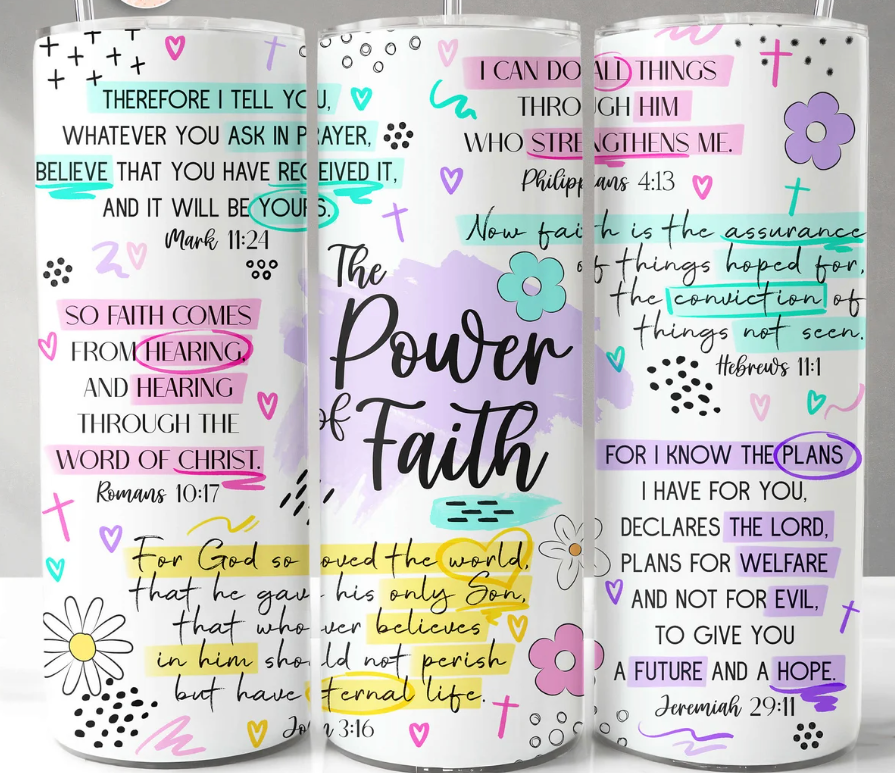 THEREFORE I TELL YOU,
WHATEVER YOU ASK IN PRAYER,
BELIEVE THAT YOU HAVE RECEIVED IT,
AND IT WILL BE YOURS.
Mark 11:24
SO FAITH COMES
FROM HEARING,
AND HEARING
THROUGH THE
WORD OF CHRIST.
Romans 10:17
The
Power
of
Faith
For God so loved the world,
that he gave his only Son,
that whoever believes
in him should not perish
but have eternal life.
John 3:16
I CAN DO ALL THINGS
THROUGH HIM
WHO STRENGTHENS ME.
Philippians 4:13
Now faith is the assurance
of things hoped for,
the conviction of
things not seen.
Hebrews 11:1
FOR I KNOW THE PLANS
I HAVE FOR YOU,
DECLARES THE LORD,
PLANS FOR WELFARE
AND NOT FOR EVIL,
TO GIVE YOU
A FUTURE AND A HOPE.
Jeremiah 29:11